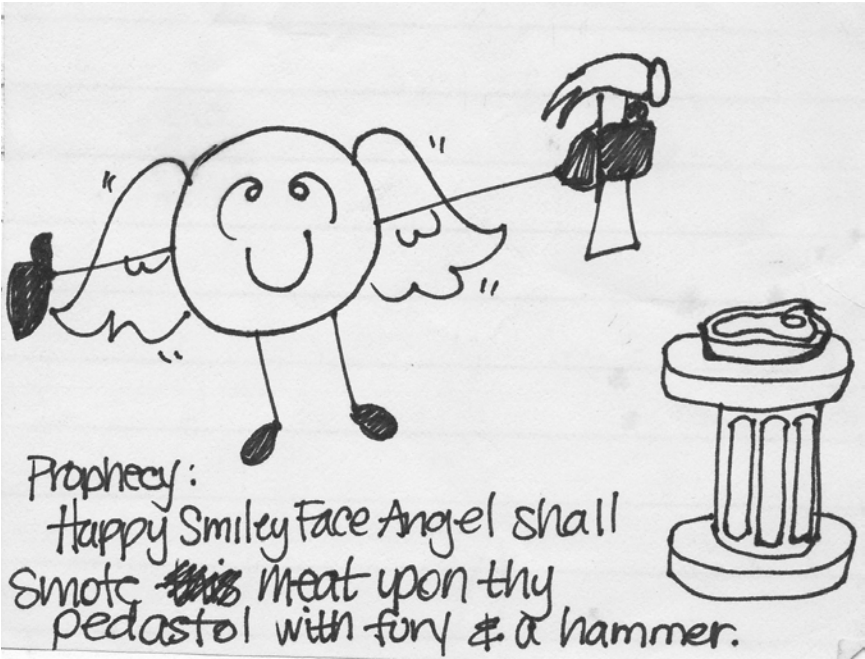 Prophecy:
Happy Smiley Face Angel shall
smote this meat upon thy
pedastol with fury & a hammer.